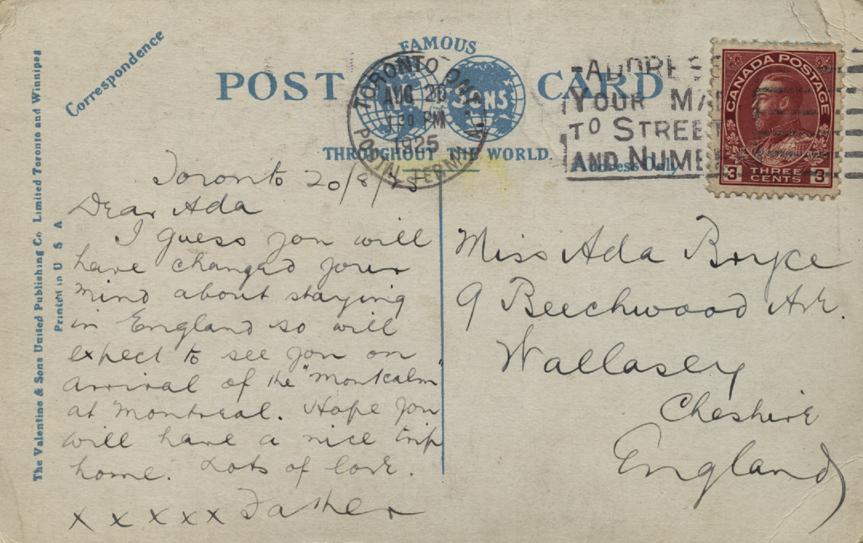 Correspondence
FAMOUS
POST CARD
SONS
THROUGHOUT THE WORLD.
Address Only
TORONTO ONT.
AUG 20
PM
1925
POSTAL TERM A
ADDRESS
YOUR MA
TO STREE
AND NUMB
CANADA POSTAGE
3 THREE CENTS 3
The Valentine & Sons United Publishing Co. Limited Toronto and Winnipeg
Printed in U S A
Toronto 20/8/25
Dear Ada
I guess you will
have changed your
mind about staying
in England so will
expect to see you on
arrival of the "Montcalm"
at Montreal. Hope you
will have a nice trip
home. Lots of love.
x x x x x Father
Miss Ada Bryce
9 Beechwood Av.
Wallasey
Cheshire
England